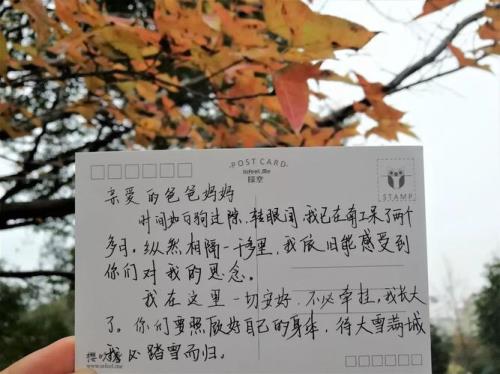 POST CARD
InFeel.Me
STAMP
亲爱的爸爸妈妈
时间如白驹过隙，转眼间，我已在南工呆了两个
多月。纵然相隔一千多里，我依旧能感受到
你们对我的思念。
我在这里一切安好，不必牵挂，我长大
了。你们要照顾好自己的身体，待大雪满城
我必踏雪而归。
www.infeel.me